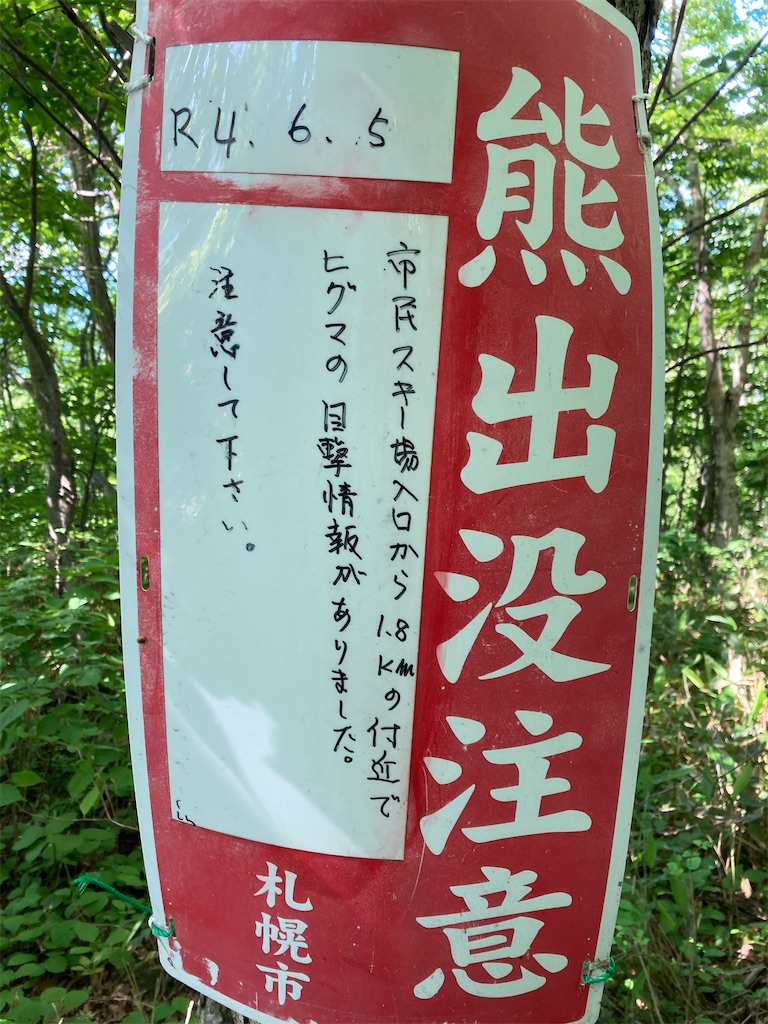 熊出没注意
R4.6.5
市民スキー場入口から1.8Kmの付近で
ヒグマの目撃情報がありました。
注意して下さい。
札幌市